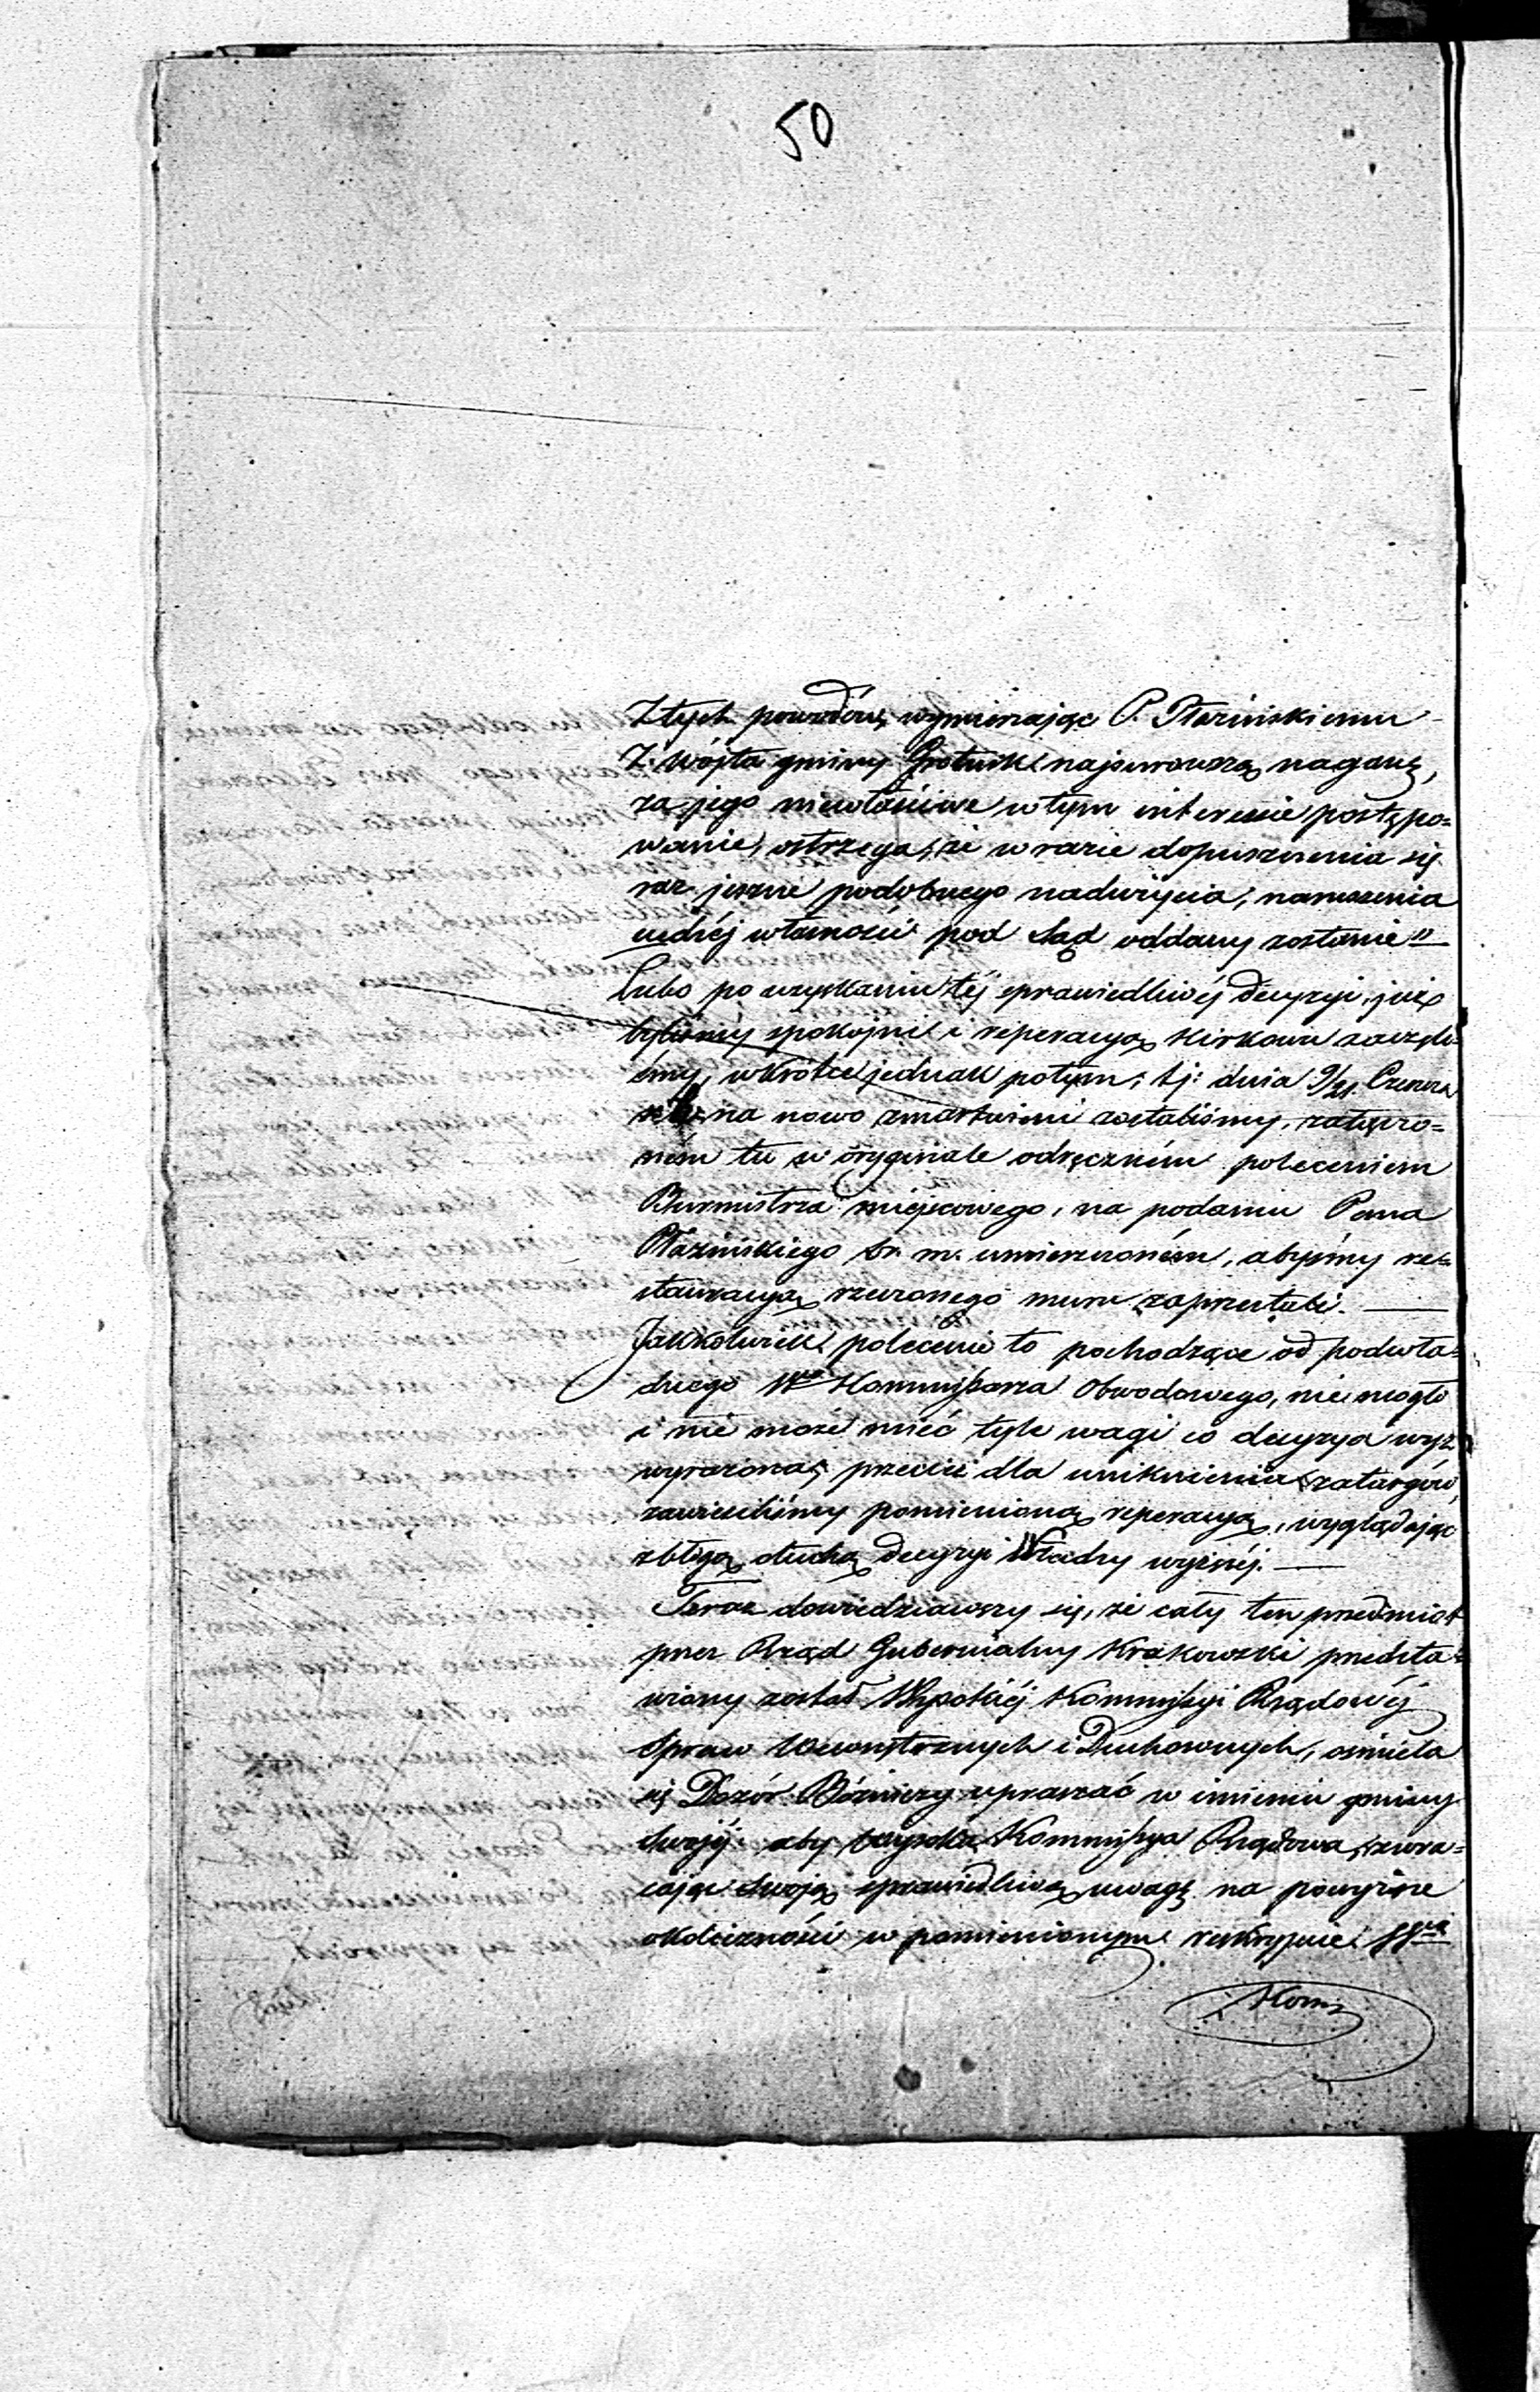 50
Z tych powodów, wymierzając P. Płazińskiemu
Z. Wójta gminy Grotnik najsurowszą naganę,
za jego niewłaściwe w tym interesie postępo=
wanie, ostrzega, że w razie dopuszczenia się
raz jeszcze podobnego nadużycia, naruszenia
cudzéj własności pod Sąd oddany zostanie"
Lubo po uzyskaniu téj sprawiedliwéj decyzyi, już
byliśmy spokojni i reperacyą Kirkowu zaczęli=
śmy, wkrótce jednak potym, tj: dnia 9/21. Czerwca
na nowo zmartwieni zostaliśmy, załączo=
ném tu w oryginale odręczném poleceniem
Burmistrza miejscowego, na podaniu Pana
Płazińskiego br. m. umieszczoném, abyśmy re=
stauracyą rzeczonego muru zaprzestali. —
Jakkolwiek polecenie to pochodzące od podwła=
dnego Wgo Kommissarza Obwodowego, nie mogło
i nie może mieć tyle wagi co decyzya wyż
wyrażona, przecież dla uniknienia zatargów,
zawiesiliśmy pomienioną reperacyą, wyglądając
z błogą otuchą decyzyi Władzy wyższéj. —
Teraz dowiedziawszy się, że cały ten przedmiot
przez Rząd Gubernialny Krakowski przedsta=
wiony został Wysokiéj Kommissyi Rządowéj
Spraw Wewnętrznych i Duchownych, ośmiela
się Dozór Bóżniczy upraszać w imieniu gminy
swojéj aby Wysoka Kommissya Rządowa, zwra=
cając Swoją sprawiedliwą uwagę na powyższe
okoliczności w pomienionym reskrypcie
Kom